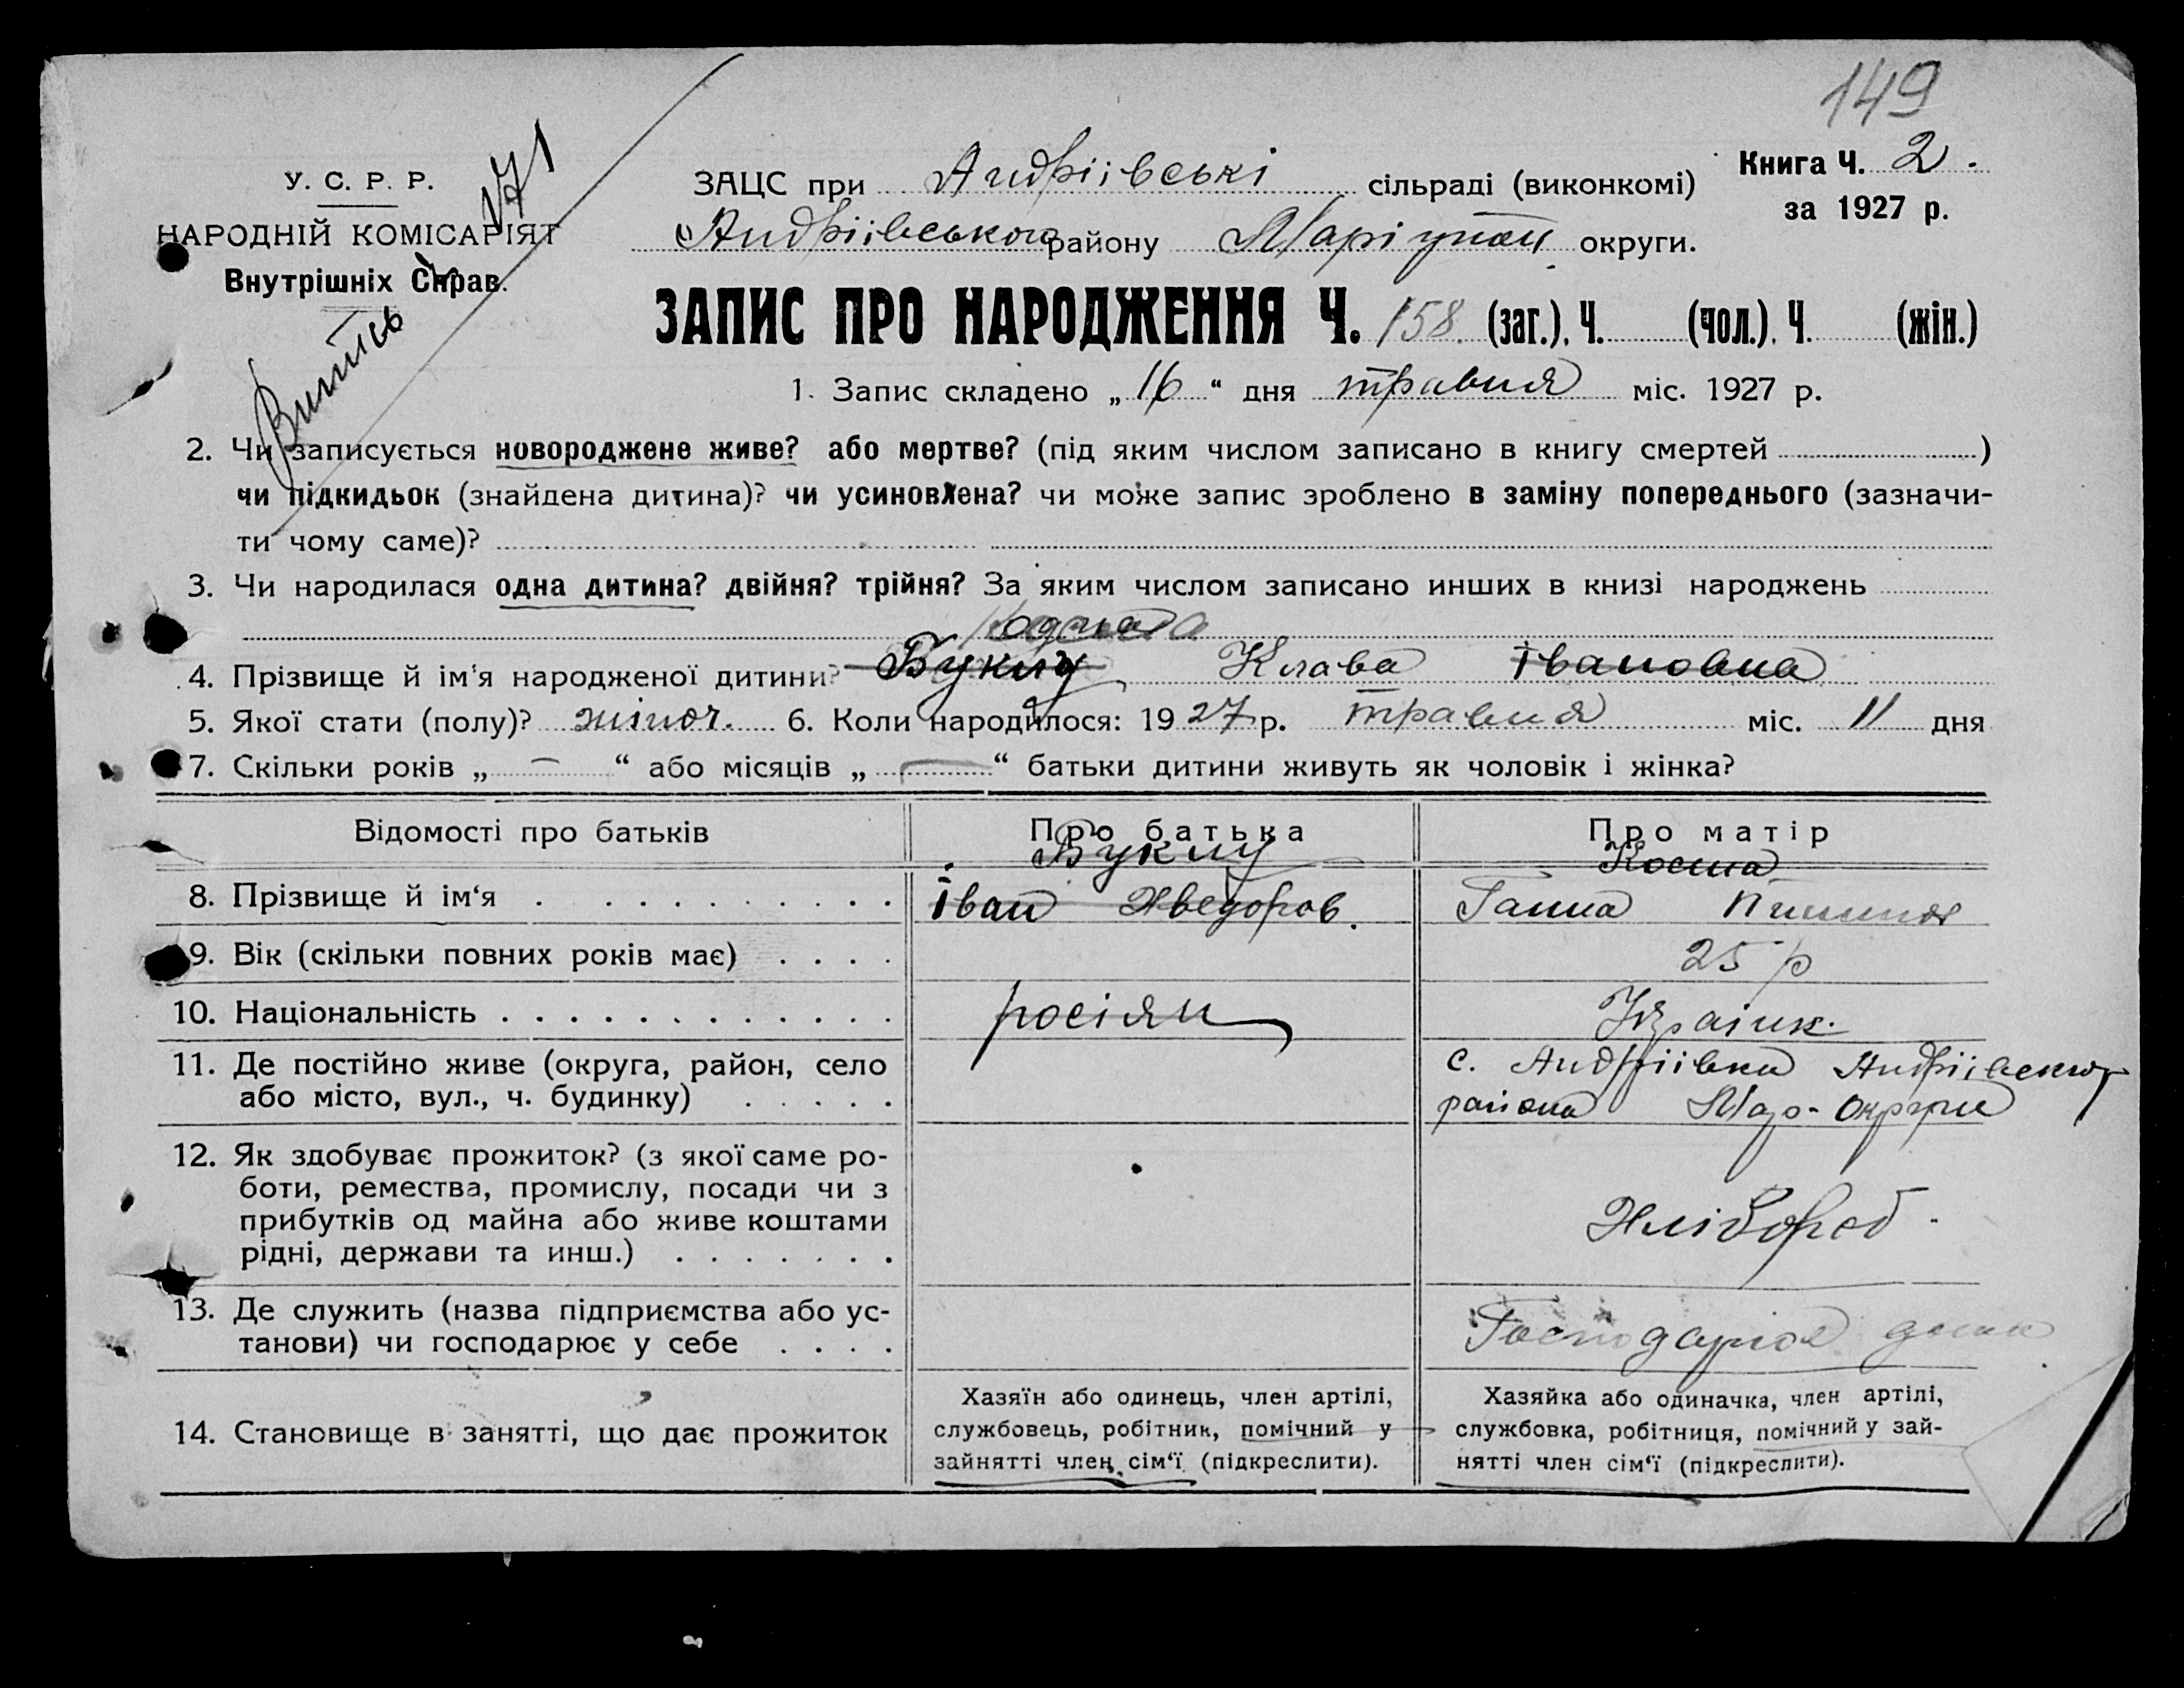 149
171
У. С. Р. Р.
НАРОДНІЙ КОМІСАРІЯТ
Внутрішніх Справ.
Витпсь
ЗАЦС при Андріівські сільраді (виконкомі)
Книга Ч. 2.
за 1927 р.
Андріівського району Маріупол. округи.
ЗАПИС ПРО НАРОДЖЕННЯ Ч. 158 (заг.), Ч. (чол.), Ч. (жін.)
1. Запис складено „ 16 “ дня травня міс. 1927 р.
2. Чи записується новороджене живе? або мертве? (під яким числом записано в книгу смертей )
чи підкидьок (знайдена дитина)? чи усиновлена? чи може запис зроблено в заміну попереднього (зазначи-
ти чому саме)?
3. Чи народилася одна дитина? двійня? трійня? За яким числом записано инших в книзі народжень
одна
4. Прізвище й ім‘я народженої дитини? Клава Івановна
5. Якої стати (полу)? жіноч. 6. Коли народилося: 19 27 р. травня міс. 11 дня
7. Скільки років „ – “ або місяців „ “ батьки дитини живуть як чоловік і жінка?
Відомості про батьків
Про батька
Про матір
8. Прізвище й ім‘я
Іван Хведоров.
Ганна
9. Вік (скільки повних років має)
25 р
10. Національність
росіян
Украінк.
11. Де постійно живе (округа, район, село
або місто, вул., ч. будинку)
с. Андріівка Андріівског
района Мар- Округи
12. Як здобуває прожиток? (з якої саме ро-
боти, ремества, промислу, посади чи з
прибутків од майна або живе коштами
рідні, держави та инш.)
Хлібороб.
13. Де служить (назва підприємства або ус-
танови) чи господарює у себе
Господарює дома
14. Становище в занятті, що дає прожиток
Хазяїн або одинець, член артілі,
службовець, робітник, помічний у
зайнятті член сім‘ї (підкреслити).
Хазяйка або одиначка, член артілі,
службовка, робітниця, помічний у зай-
нятті член сім‘ї (підкреслити).